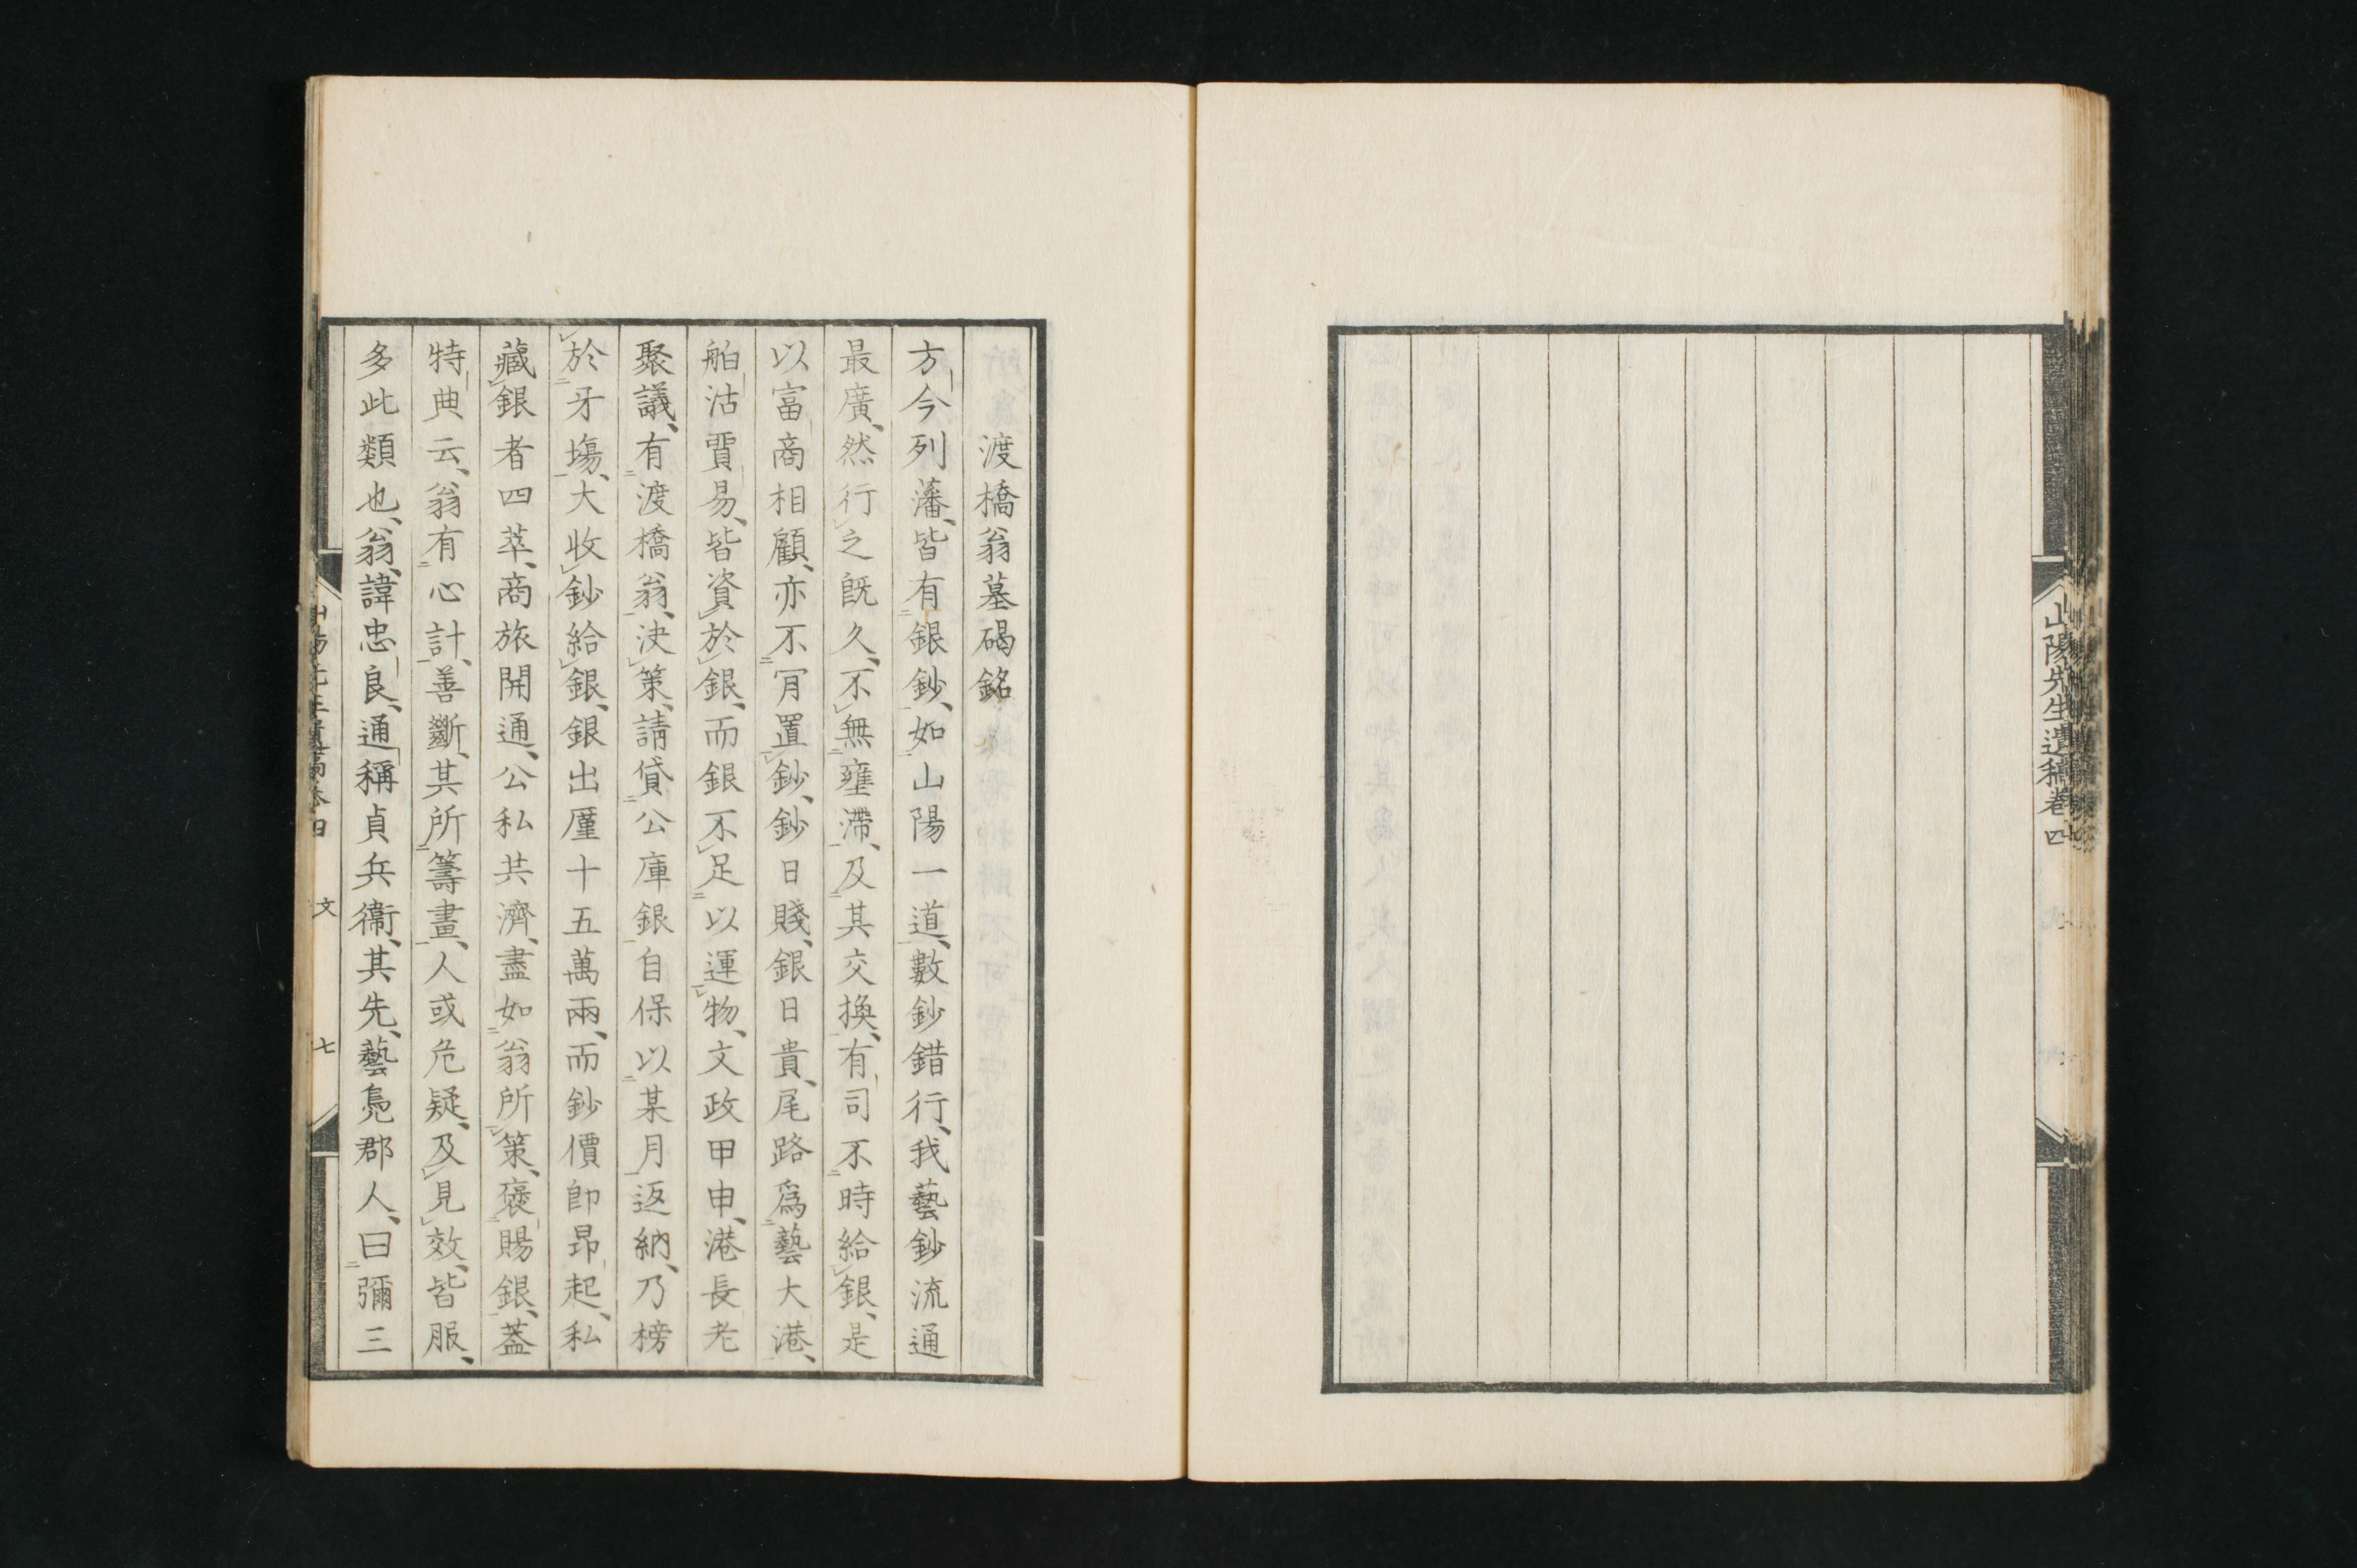 山陽先生遺稿卷四
渡橋翁墓碣銘
方今列藩、皆有銀鈔、如山陽一道、數鈔錯行、我藝鈔流通
最廣、然行之既久、不無壅滯、及其交換、有司不時給銀、是
以富商相顧、亦不肎置鈔、鈔日賤、銀日貴、尾路爲藝大港、
舶沽賈易、皆資於銀、而銀不足以運物、文政甲申、港長老
聚議、有渡橋翁、決策、請貸公庫銀自保以某月返納、乃榜
於牙塲、大收鈔給銀、銀出廑十五萬兩、而鈔價卽昂起、私
藏銀者四萃、商旅開通、公私共濟、盡如翁所策、褒賜銀、蓋
特典云、翁有心計、善斷、其所籌畫、人或危疑、及見效、皆服、
多此類也、翁、諱忠良、通稱貞兵衞、其先、藝鳧郡人、曰彌三
山陽先生遺稿卷四 文 七